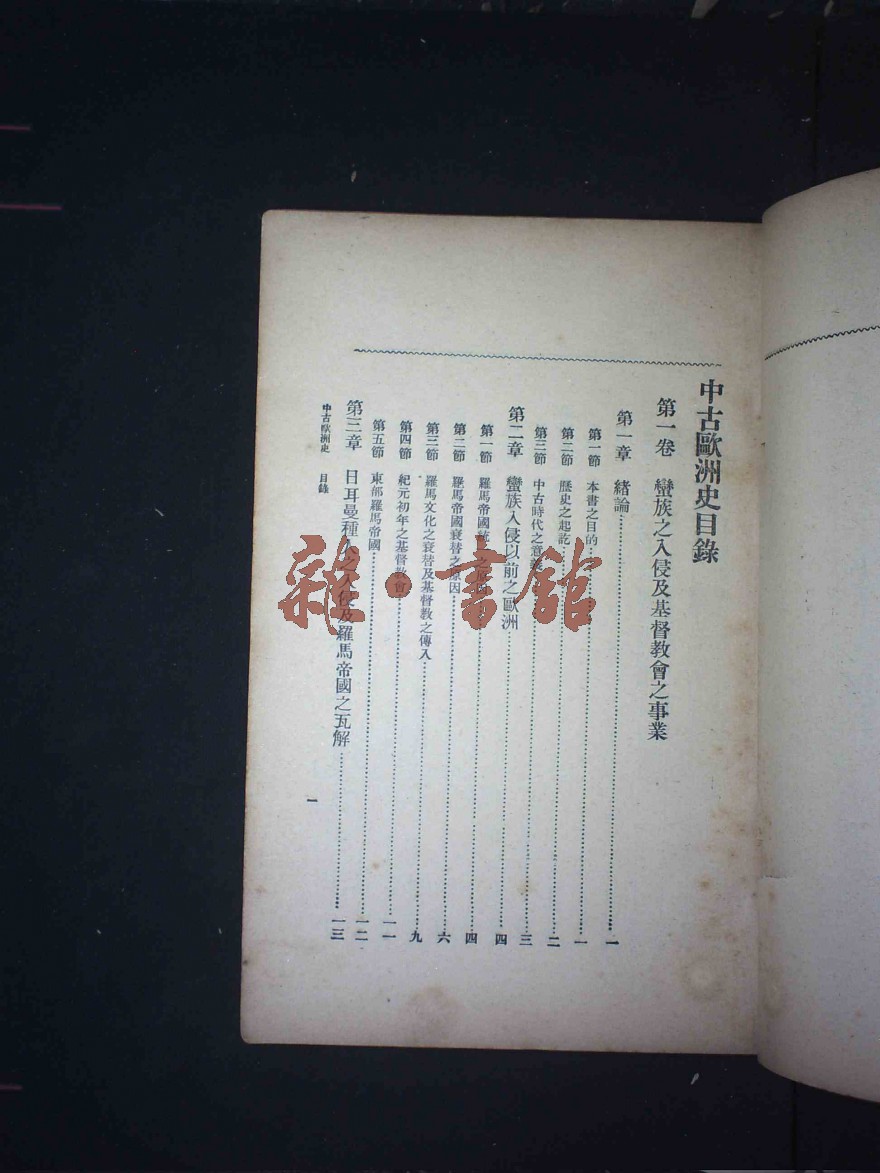 中古歐洲史目錄
第一卷 蠻族之入侵及基督教會之事業
第一章 緒論 一
第一節 本書之目的 一
第二節 歷史之起訖 二
第三節 中古時代之意義 三
第二章 蠻族入侵以前之歐洲 四
第一節 羅馬帝國統一之原因 四
第二節 羅馬帝國衰替之原因 六
第三節 羅馬文化之衰替及基督教之傳入 九
第四節 紀元初年之基督教會 一一
第五節 東部羅馬帝國 一二
第三章 日耳曼種人之入侵及羅馬帝國之瓦解 一三
中古歐洲史 目錄 一
雜·書館